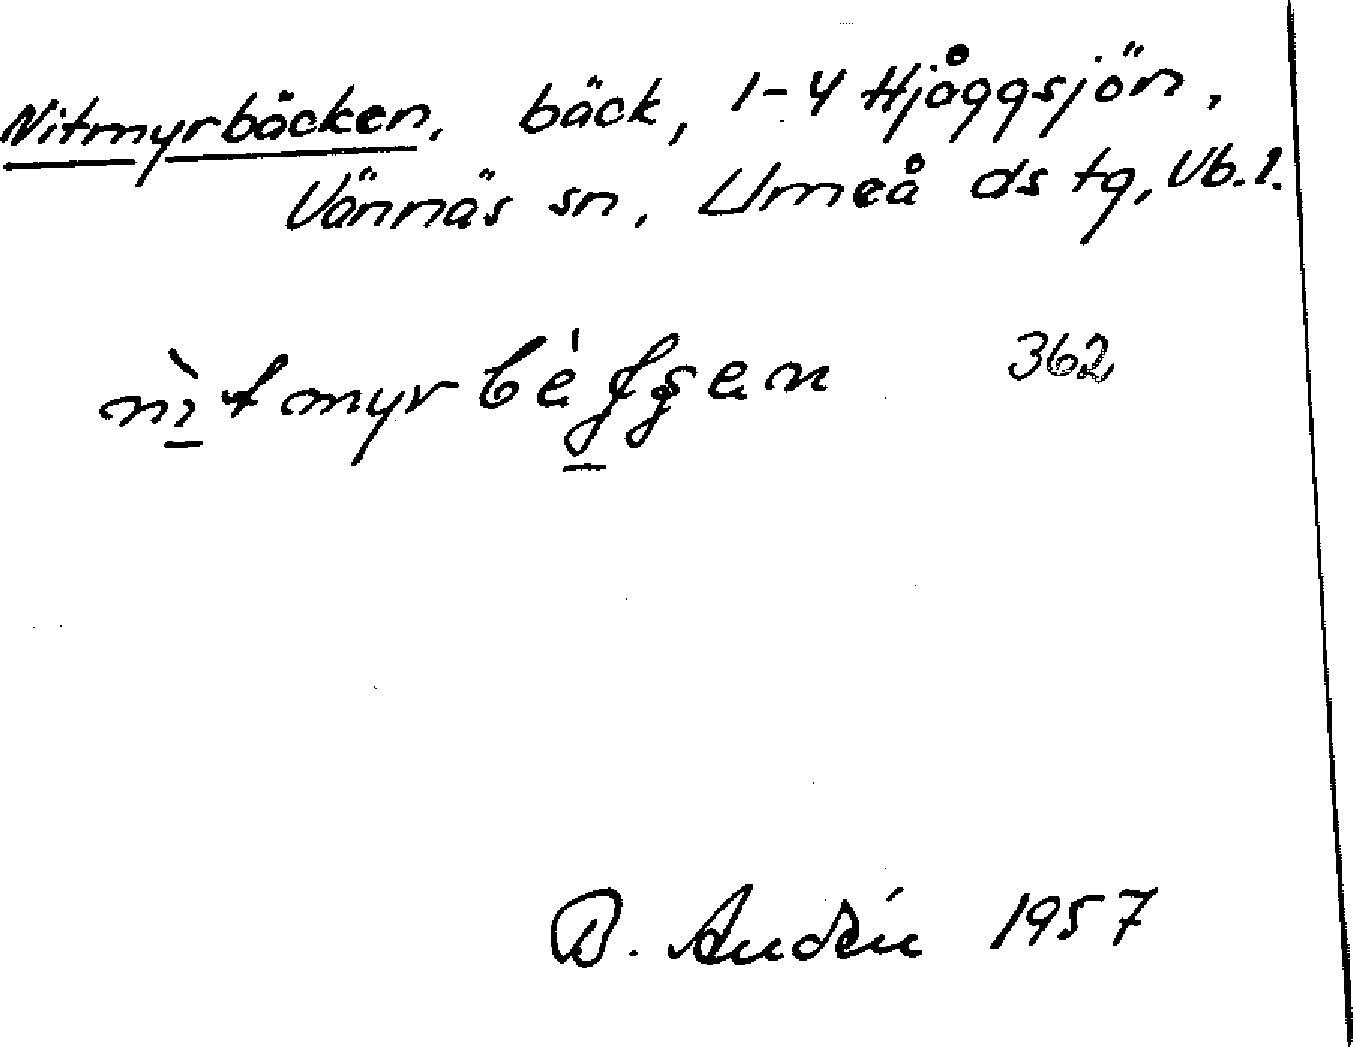 Nitmyrbäcken, bäck, 1-4 Hjåggsjön,
Vännäs sn, Umeå ds tg, Vb. l.
362
1957